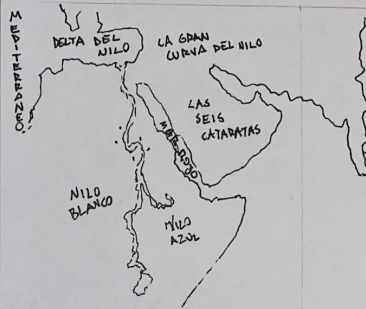 MEDITERRANEO
DELTA DEL
NILO
LA GRAN
CURVA DEL NILO
LAS
SEIS
CATARATAS
MAR ROJO
NILO
BLANCO
NILO
AZUL